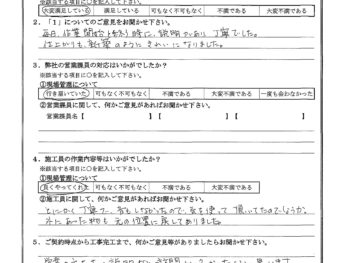 ※該当する項目に○を記入して下さい。
大変満足している 満足している 可もなく不可もなく 不満である 大変不満である
2．「1」についてのご意見をお聞かせ下さい。
毎日、作業開始と終り時に、説明があり、丁寧でした。
仕上がりも、新築のようにきれいになりました。
3．弊社の営業課員の対応はいかがでしたか？
※該当する項目に○を記入して下さい。
①現場管理について
行き届いていた 可もなく不可もなく 不満である 大変不満である 一度も会わなかった
②営業課員に関して、何かご意見があればお聞かせ下さい。
営業課員名【 】【 】【 】
4．施工員の作業内容等はいかがでしたか？
※該当する項目に○を記入して下さい。
①現場管理について
良くやってくれた 可もなく不可もなく 不満である 大変不満である
②施工員に関して、何かご意見があればお聞かせ下さい。
とにかく丁寧で、気を使って頂いてたのでしょうか。
物も元の位置に戻してありました。
5．ご契約時点から工事完工まで、何かご意見等がありましたらお聞かせ下さい。